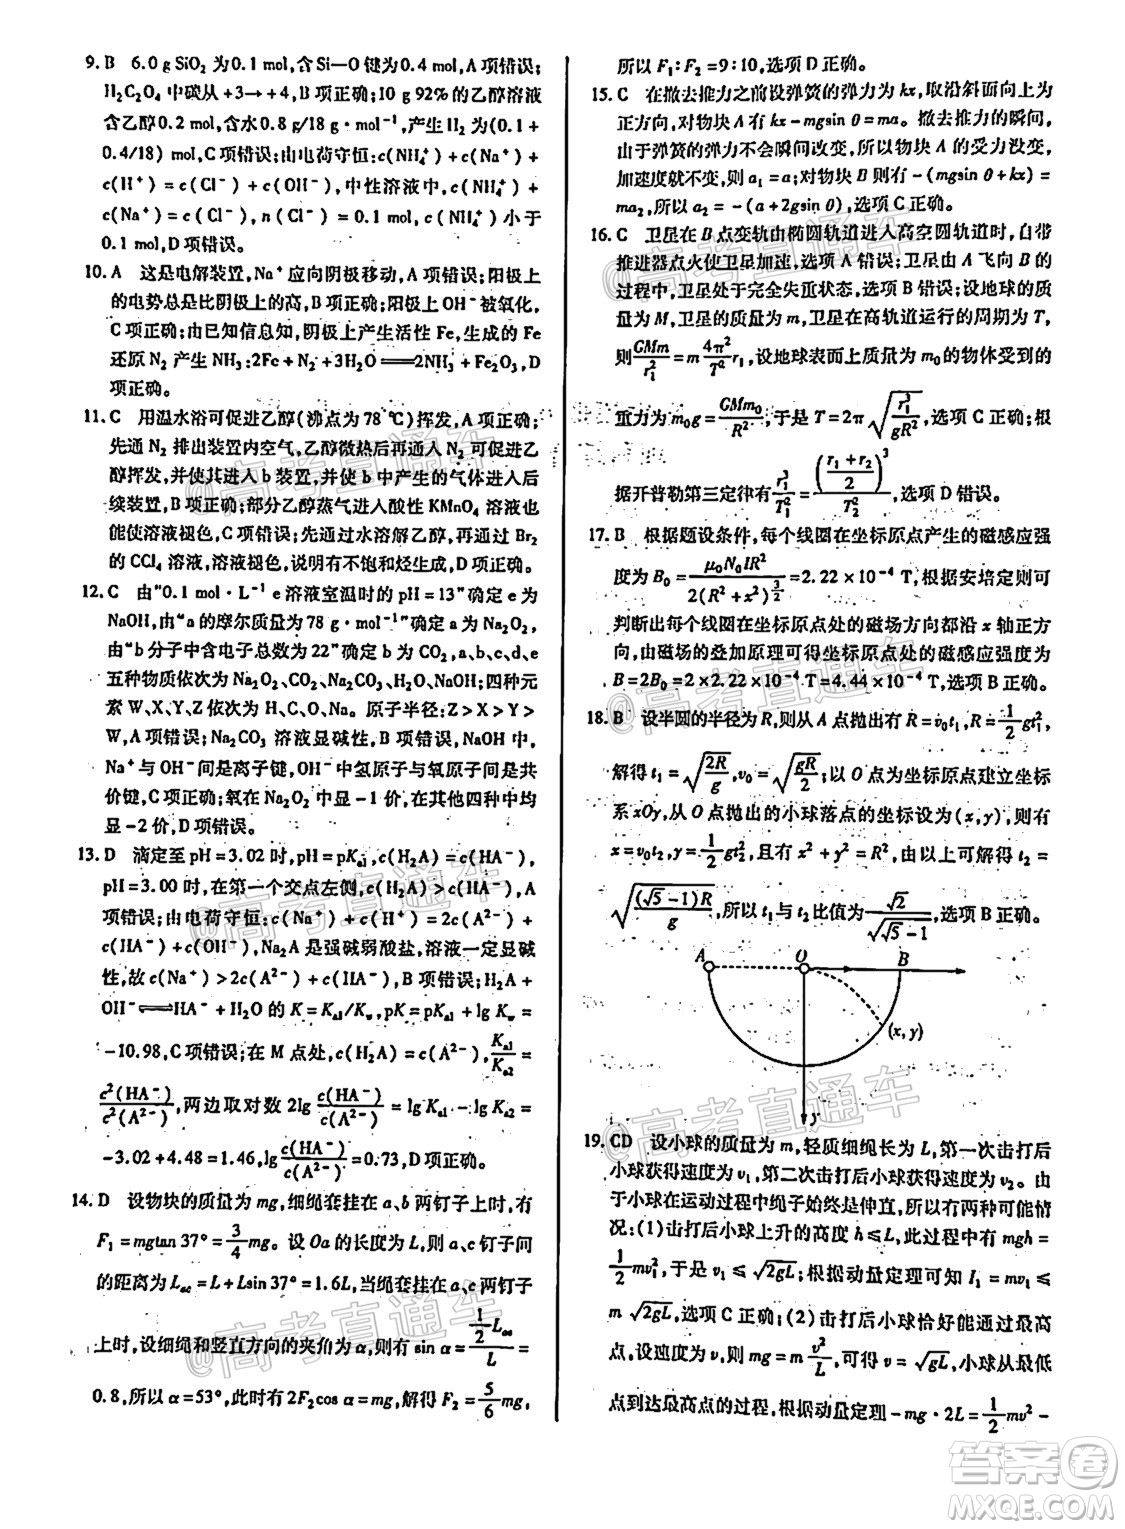 9. B 6.0 g SiO₂ 为0.1 mol,含Si—O 键为0.4 mol,A 项错误;
H₂C₂O₄ 中碳从+3→+4,B 项正确;10 g 92%的乙醇溶液
含乙醇0.2 mol,含水0.8 g/18 g·mol⁻¹,产生 H₂ 为(0.1+
0.4/18) mol,C 项错误;由电荷守恒:c(NH₄⁺)+c(Na⁺)+
c(H⁺)=c(Cl⁻)+c(OH⁻),中性溶液中,c(NH₄⁺)+
c(Na⁺)=c(Cl⁻),n(Cl⁻)=0.1 mol,c(NH₄⁺)小于
0.1 mol,D 项错误。
10. A 这是电解装置,Na⁺应向阴极移动,A 项错误;阳极上
的电势总是比阴极上的高,B 项正确;阳极上 OH⁻被氧化,
C 项正确;由已知信息知,阴极上产生活性 Fe,生成的 Fe
还原 N₂ 产生 NH₃:2Fe+N₂+3H₂O══2NH₃+Fe₂O₃,D
项正确。
11. C 用温水浴可促进乙醇(沸点为 78 ℃)挥发,A 项正确;
先通 N₂ 排出装置内空气,乙醇微热后再通入 N₂ 可促进乙
醇挥发,并使其进入 b 装置,并使 b 中产生的气体进入后
续装置,B 项正确;部分乙醇蒸气进入酸性 KMnO₄ 溶液也
能使溶液褪色,C 项错误;先通过水溶解乙醇,再通过 Br₂
的 CCl₄ 溶液,溶液褪色,说明有不饱和烃生成,D 项正确。
12. C 由“0.1 mol·L⁻¹ e 溶液室温时的 pH=13”确定 e 为
NaOH,由“a 的摩尔质量为 78 g·mol⁻¹”确定 a 为 Na₂O₂,
由“b 分子中含电子总数为 22”确定 b 为 CO₂,a、b、c、d、e
五种物质依次为 Na₂O₂、CO₂、Na₂CO₃、O₂、NaOH;四种元
素 W、X、Y、Z 依次为 H、C、O、Na。原子半径:Z>X>Y>
W,A 项错误;Na₂CO₃ 溶液显碱性,B 项错误;NaOH 中,
Na⁺与 OH⁻间是离子键,OH⁻中氢原子与氧原子间是共
价键,C 项正确;氧在 Na₂O₂ 中显-1 价,在其他四种中均
显-2 价,D 项错误。
13. D 滴定至 pH=3.02 时,pH=pKₐ₁,c(H₂A)=c(HA⁻),
pH=3.00 时,在第一个交点左侧,c(H₂A)>c(HA⁻),A
项错误;由电荷守恒:c(Na⁺)+c(H⁺)=2c(A²⁻)+
c(HA⁻)+c(OH⁻),Na₂A 是强碱弱酸盐,溶液一定显碱
性,故 c(Na⁺)>2c(A²⁻)+c(HA⁻),B 项错误;H₂A+
OH⁻⇌HA⁻+H₂O 的 K=Kₐ₁/K_w,pK=pKₐ₁+lg K_w=
-10.98,C 项错误;在 M 点处,c(H₂A)=c(A²⁻),Kₐ₁/Kₐ₂=
c²(HA⁻)/c²(A²⁻),两边取对数 2lg c(HA⁻)/c(A²⁻)=lg Kₐ₁-lg Kₐ₂=
-3.02+4.48=1.46,lg c(HA⁻)/c(A²⁻)=0.73,D 项正确。
14. D 设物块的质量为 mg,细绳套挂在 a、b 两钉子上时,有
F₁=mgtan 37°=3/4 mg。设 Oa 的长度为 L,则 a、c 钉子间
的距离为 L_ac=L+Lsin 37°=1.6L,当绳套挂在 a、c 两钉子
上时,设细绳和竖直方向的夹角为 α,则有 sin α=(1/2 L_ac)/L=
0.8,所以 α=53°,此时有 2F₂cos α=mg,解得 F₂=5/6 mg,
所以 F₁∶F₂=9∶10,选项 D 正确。
15. C 在撤去推力之前设弹簧的弹力为 kx,取沿斜面向上为
正方向,对物块 A 有 kx-mgsin θ=ma。撤去推力的瞬间,
由于弹簧的弹力不会瞬间改变,所以物块 A 的受力没变,
加速度就不变,则 a₁=a;对物块 B 有-(mgsin θ+kx)=
ma₂,所以 a₂=-(a+2gsin θ),选项 C 正确。
16. C 卫星在 B 点变轨由椭圆轨道进入高空圆轨道时,自带
推进器点火使卫星加速,选项 A 错误;卫星由 A 飞向 B 的
过程中,卫星处于完全失重状态,选项 B 错误;设地球的质
量为 M,卫星的质量为 m,卫星在高轨道运行的周期为 T,
则 GMm/r₁²=m 4π²/T² r₁,设地球表面上质量为 m₀ 的物体受到的
重力为 m₀g=GMm₀/R²,于是 T=2π√(r₁³/gR²),选项 C 正确;根
据开普勒第三定律有 r₁³/T₁²=((r₁+r₂)/2)³/T₂²,选项 D 错误。
17. B 根据题设条件,每个线圈在坐标原点产生的磁感应强
度为 B₀=μ₀N₀IR²/2(R²+x²)^(3/2)=2.22×10⁻⁴ T,根据安培定则可
判断出每个线圈在坐标原点处的磁场方向都沿 x 轴正方
向,由磁场的叠加原理可得坐标原点处的磁感应强度为
B=2B₀=2×2.22×10⁻⁴ T=4.44×10⁻⁴ T,选项 B 正确。
18. B 设半圆的半径为 R,则从 A 点抛出有 R=v₀t₁,R=1/2 gt₁²,
解得 t₁=√(2R/g),v₀=√(gR/2);以 O 点为坐标原点建立坐标
系 xOy,从 O 点抛出的小球落点的坐标设为(x,y),则有
x=v₀t₂,y=1/2 gt₂²,且有 x²+y²=R²,由此可解得 t₂=
√((√5-1)R/g),所以 t₁ 与 t₂ 比值为 √2/√(√5-1),选项 B 正确。
A O B
(x, y)
y
19. CD 设小球的质量为 m,轻质细绳长为 L,第一次击打后
小球获得速度为 v₁,第二次击打后小球获得速度为 v₂。由
于小球在运动过程中绳子始终是伸直,所以有两种可能情
况:(1)击打后小球上升的高度 h≤L,则有 mgh=
1/2 mv₁²,于是 v₁≤√(2gL),根据动量定理可知 I₁=mv₁≤
m√(2gL),选项 C 正确;(2)击打后小球恰好能通过最高
点,设速度为 v,则 mg=m v²/L,可得 v=√(gL),小球从最低
点到达最高点的过程,根据动能定理-mg·2L=1/2 mv²-
@高考直通车
@高考直通车
@高考直通车
@高考直通车
@高考直通车
@高考直通车
答案卷
MXQE.COM